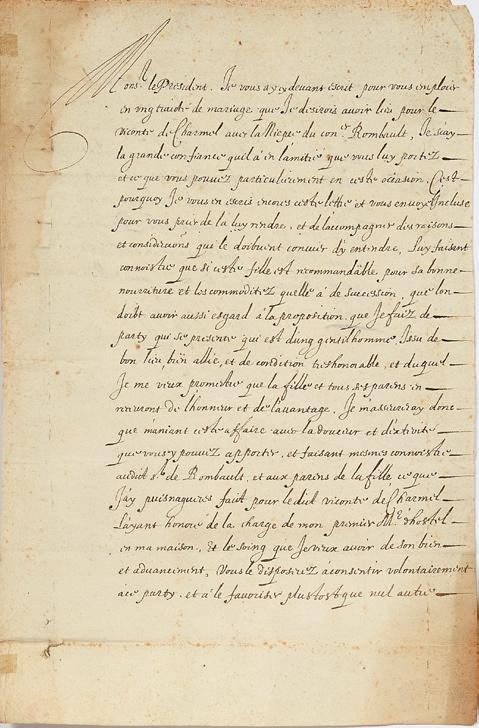 Mons.r le President. Je vous ay cydevant escrit pour vous emploier
en ung traicté de mariage que Je desirois avoir lieu pour le
viconte de Charmel avec la Niepce du con.er Rombault, Je sçay
la grande confiance quil à en lamitié que vous luy portez
et ce que vous pouvez particulierement en ceste occasion, C'est
pourquoy Je vous en escris encores ceste lettre et vous envoye l'incluse
pour vous prier de la luy rendre, et de laccompagner des raisons
et considerations que le doibvent convier d'y entendre, Luy faisant
connoistre que si ceste fille est recommandable, pour sa bonne
nourriture et les commoditez quelle à de succession, que lon
doibt avoir aussi esgard à la proposition que Je faiz de
party qui se presente qui est dung gentilhomme, Issu de
bon lieu, bien allié, et de condition treshonorable, et duquel
Je me veux promettre que la fille et tous ses parens en
recevront de lhonneur et de lavantage. Je m'asseureray donc
que maniant ceste affaire avec la douceur et dexterité
que vous y pouvez apporter, et faisant mesmes connoistre
audict s.r de Rombault, et aux parens de la fille, ce que
J'ay puisnagueres faict pour le dict viconte de Charmel
Layant honoré de la charge de mon premier M.e d'hostel
en ma maison, et le soing que Je veux avoir de son bien
et advancement, Vous le disposerez à consentir volontairement
à ce party, et à le favoriser plustost que nul autre